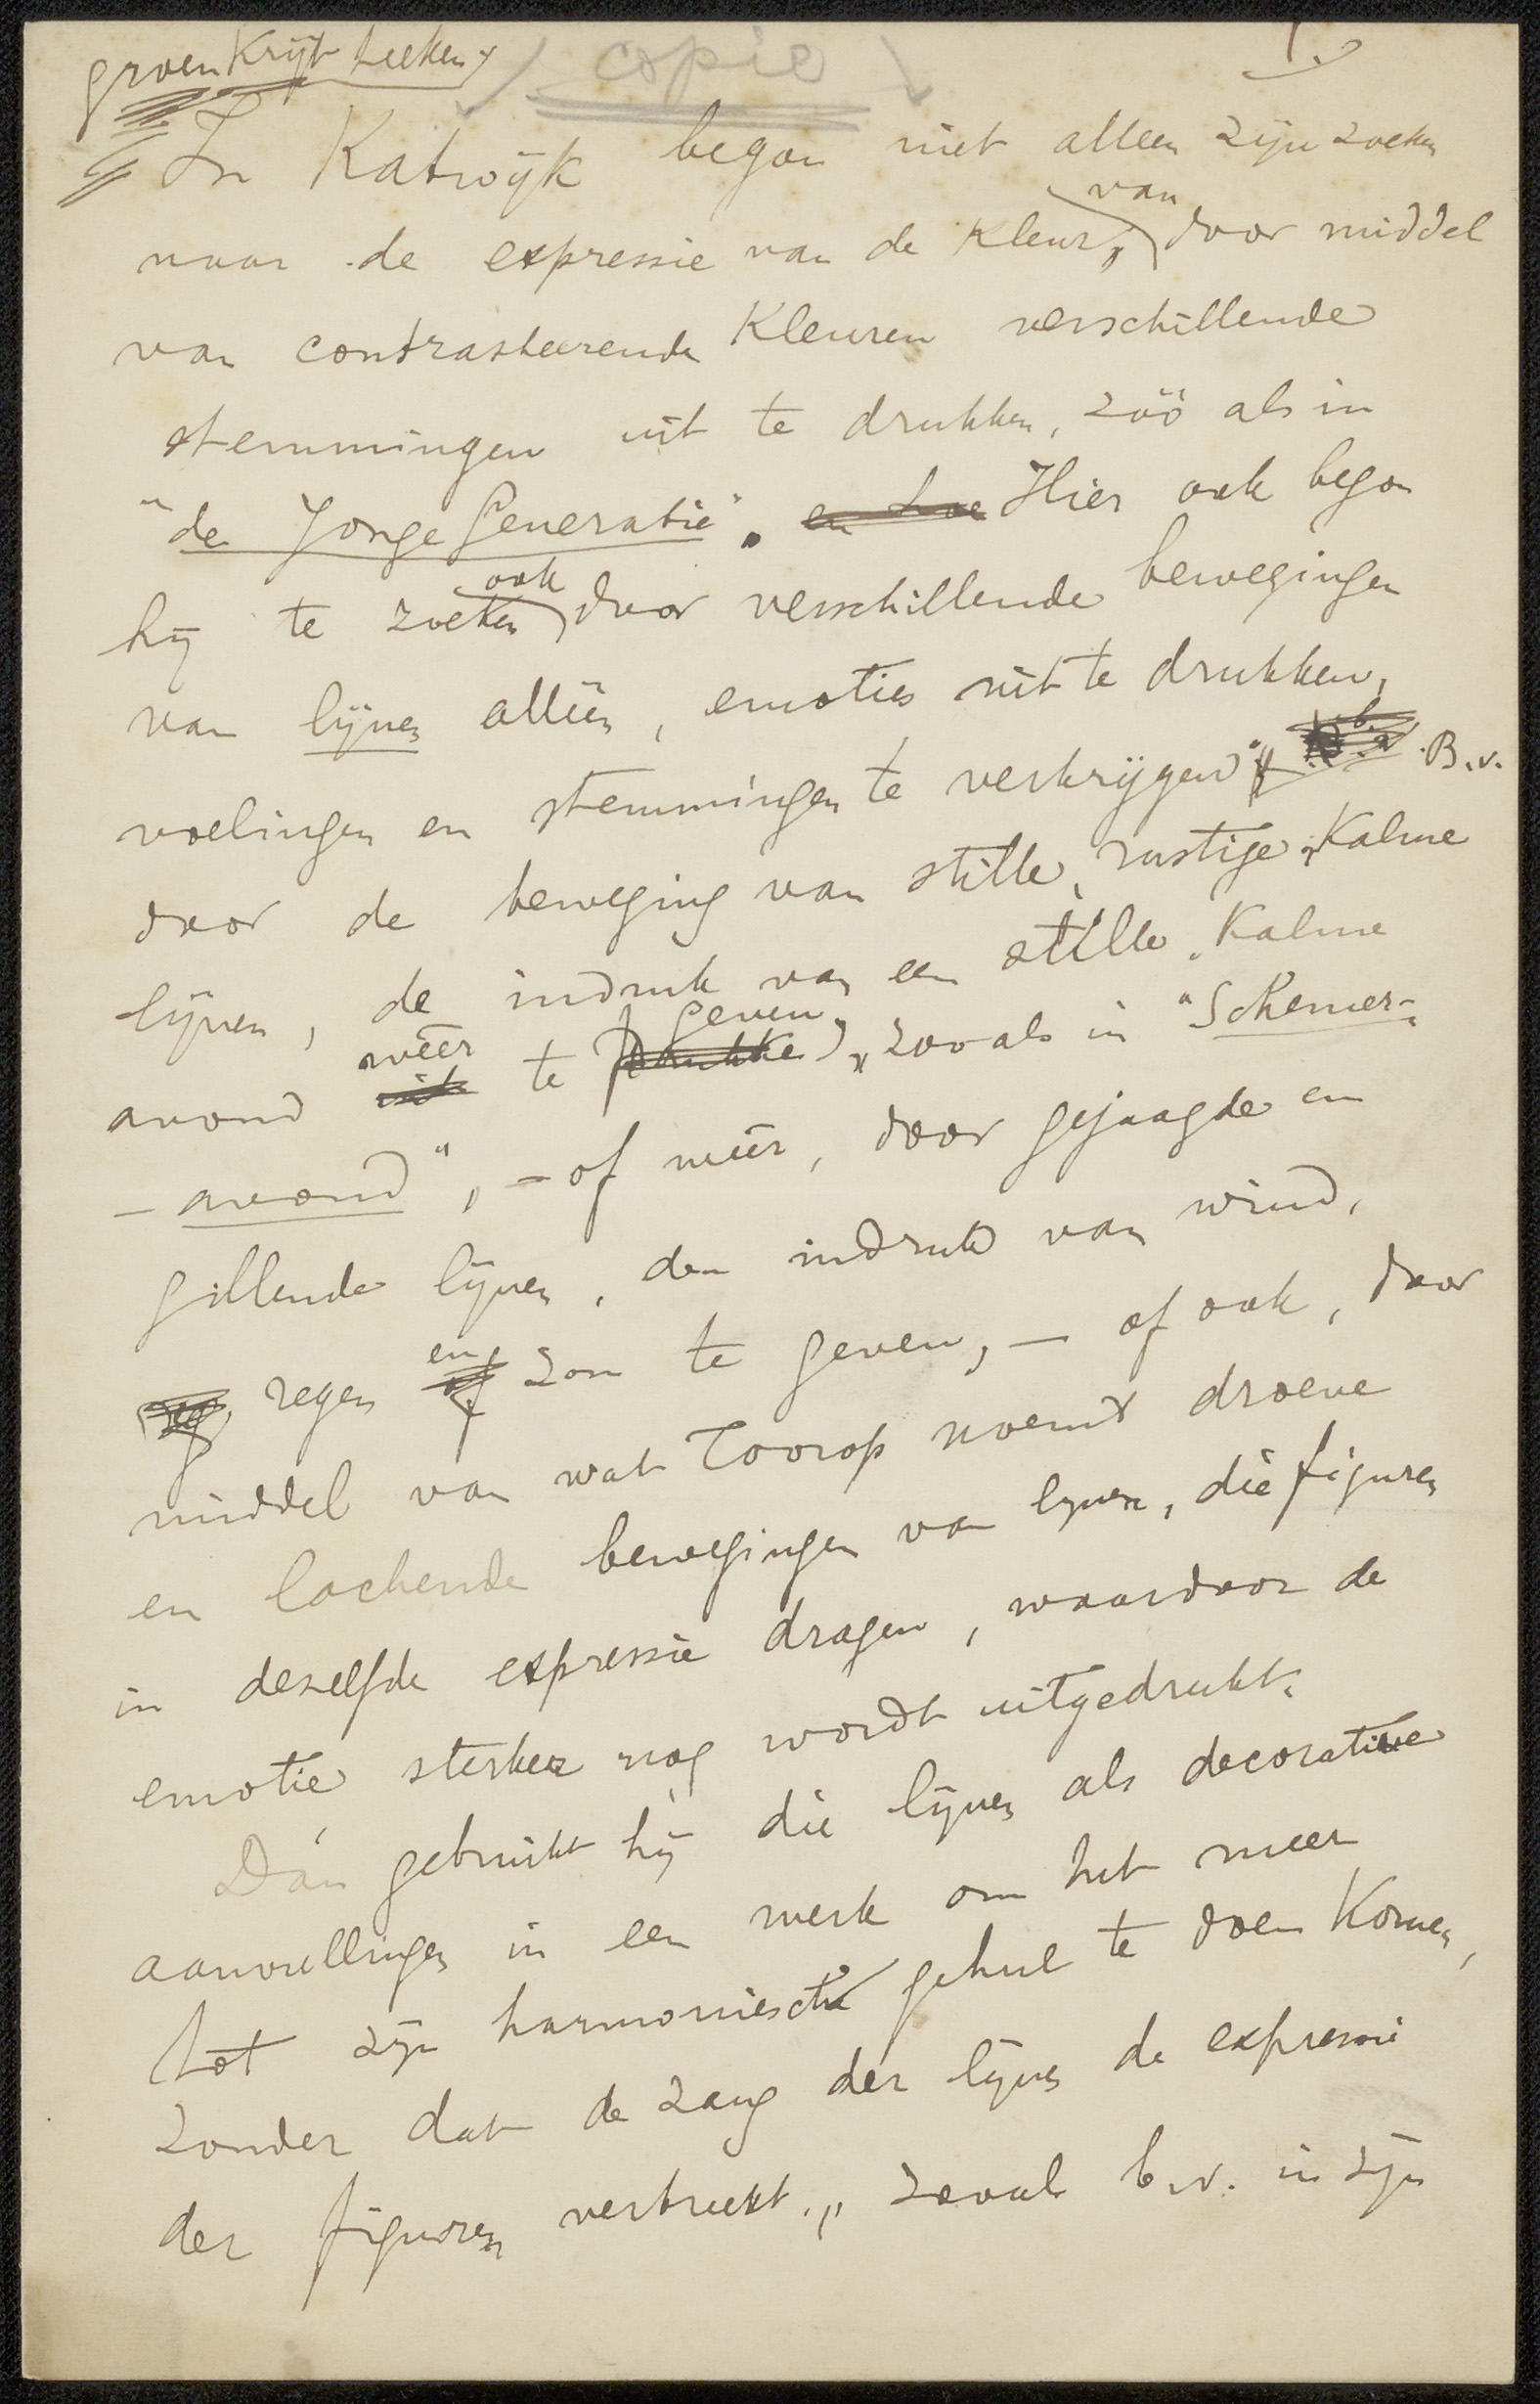 groen Krijt teeken
copie
1.
In Katwijk begon niet alleen zijn zoeken
van
naar de expressie van de Kleur, door middel
van contrasteerende Kleuren verschillende
stemmingen uit te drukken, zóó als in
"de Jonge Generatie". en hoe Hier ook begon
ook
hij te zoeken door verschillende bewegingen
van lijnen alléén, emoties uit te drukken,
voelingen en stemmingen te verkrijgen B.v.
door de beweging van stille, rustige, Kalme
lijnen, de indruk van een stille, Kalme
wéér geven
avond uit te drukke, zooals in "Schemer-
-avond", - of wéér, door gejaagde en
gillende lijnen, den indruk van wind,
en
regen of zon te geven, — of ook, door
middel van wat Toorop noemt droeve
en lachende bewegingen van lynen, die figuren
in deselfde expressie dragen, waardoor de
emotie sterker nog wordt uitgedrukt.
Dán gebruikt hij die lijnen als decoratieve
aanvullingen in een werk om het meer
tot zijn harmonisch geheel te doen Komen,
zonder dat de zang der lijnen de expressie
der figuren verbreekt., zooals b.v. in zijn